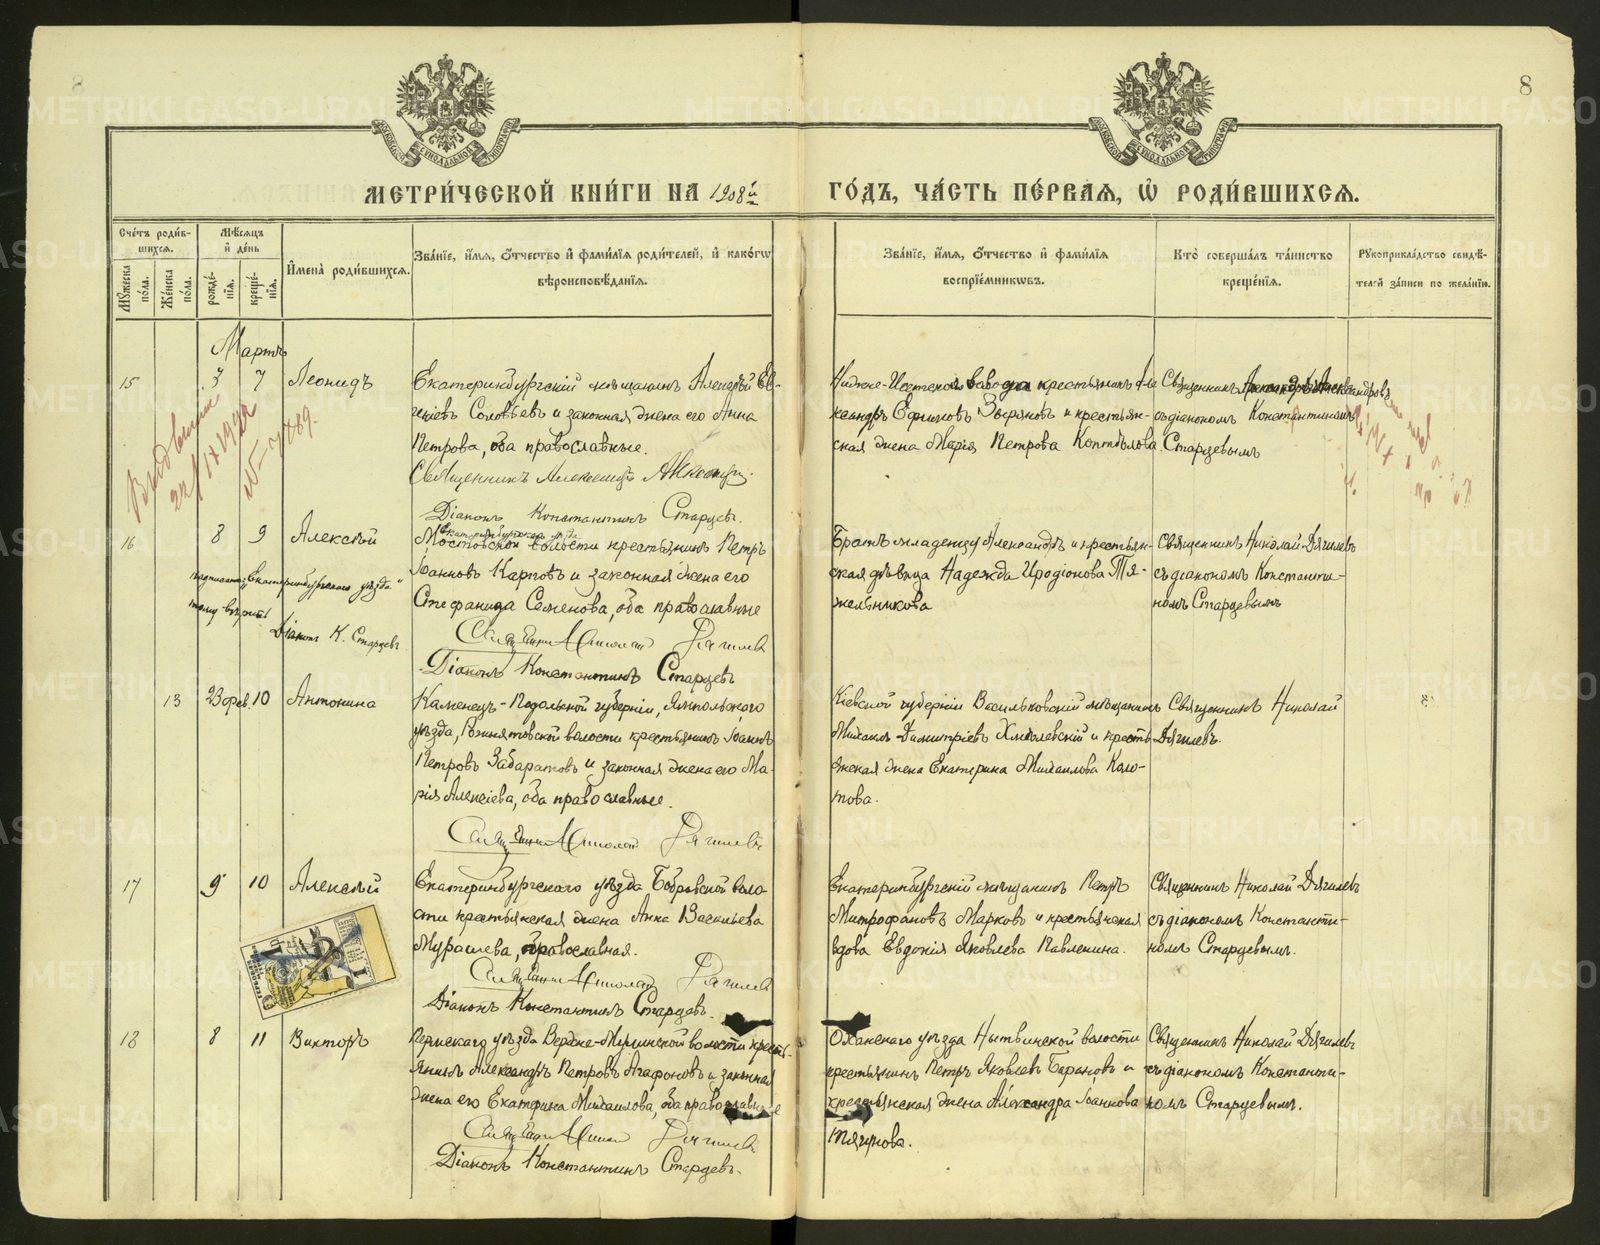 8
8
МЕТРИ́ЧЕСКОЙ КНИ́ГИ НА 1908й ГО́ДЪ, ЧА́СТЬ ПЕ́РВАѦ, Ѡ҆ РОДИ́ВШИХСѦ.
Сче́тъ роди́в-
шихсѧ.
Му́жеска по́ла.
Же́нска по́ла.
Мѣ́сѧцъ
и҆ де́нь
рожде́-
нїѧ.
креще́-
нїѧ.
И҆мена̀ роди́вшихсѧ.
Зва́нїе, и҆́мѧ, ѻ҆́тчество и҆ фами́лїѧ роди́телей, и҆ како́гѡ
вѣроисповѣ́данїѧ.
Зва́нїе, и҆́мѧ, ѻ҆́тчество и҆ фами́лїѧ
воспрїе́мникѡвъ.
Кто̀ соверша́лъ та́инство
креще́нїѧ.
Рꙋкоприкла́дство свидѣ́-
телей за́писи по жела́нїю.
Мартъ
15 3 7 Леонидъ
Екатеринбургскій мѣщанинъ Алексѣй Ев-
геніевъ Соловьевъ и законная жена его Анна
Петрова, оба православные.
Священникъ Александръ
Діаконъ Константинъ Старцевъ.
Нижне-Исетскаго завода крестьянинъ Але-
ксандръ Ефимовъ Звѣряновъ и крестьян-
ская жена Марія Петрова Коптѣлова
Священникъ
съ діакономъ Константиномъ
Старцевымъ
16 8 9 Алексѣй
Екатеринбургскаго уѣзда
Мостовской волости крестьянинъ Петръ
Іоанновъ Карповъ и законная жена его
Стефанида Семенова, оба православные
Священникъ Николай Дягилевъ
Діаконъ Константинъ Старцевъ
Екатеринбургскаго уѣзда"
тому вѣрить
Діаконъ К. Старцевъ
Братъ младенцу Александръ и крестьян-
ская дѣвица Надежда Иродіонова Тя-
жельникова
Священникъ Николай Дягилевъ
съ діакономъ Константи-
номъ Старцевымъ
13 23 фев. 10 Антонина
Каменецъ-Подольской губерніи, Ямпольскаго
уѣзда, волости крестьянинъ Іоаннъ
Петровъ Забаратовъ и законная жена его Ма-
рія Алексіева, оба православные.
Священникъ Николай Дягилевъ
Кіевской губерніи Васильковскій мѣщанинъ
Михаилъ Димитріевъ Хмѣлевскій и кресть-
янская жена Екатерина Михаилова Коло-
това.
Священникъ Николай
Дягилевъ.
17 9 10 Алексѣй
Екатеринбургскаго уѣзда Бобровской воло-
сти крестьянская жена Анна Васильева
Мурашева, православная.
Священникъ Николай Дягилевъ
Діаконъ Константинъ Старцевъ.
Екатеринбургскій мѣщанинъ Петръ
Митрофановъ Марковъ и крестьянская
вдова Евдокія Яковлева Павленина.
Священникъ Николай Дягилевъ
съ діакономъ Константи-
номъ Старцевымъ.
18 8 11 Викторъ
Пермскаго уѣзда Верхне-Муллинской волости кресть-
янинъ Александръ Петровъ Агафоновъ и законная
жена его Екатерина Михаилова, оба православные
Священникъ Николай Дягилевъ
Діаконъ Константинъ Старцевъ.
Оханскаго уѣзда Нытвинской волости
крестьянинъ Петръ Яковлевъ Барановъ и
крестьянская жена Александра Іоаннова
Тягунова.
Священникъ Николай Дягилевъ
съ діакономъ Константи-
номъ Старцевымъ.
METRIKI.GASO-URAL.RU